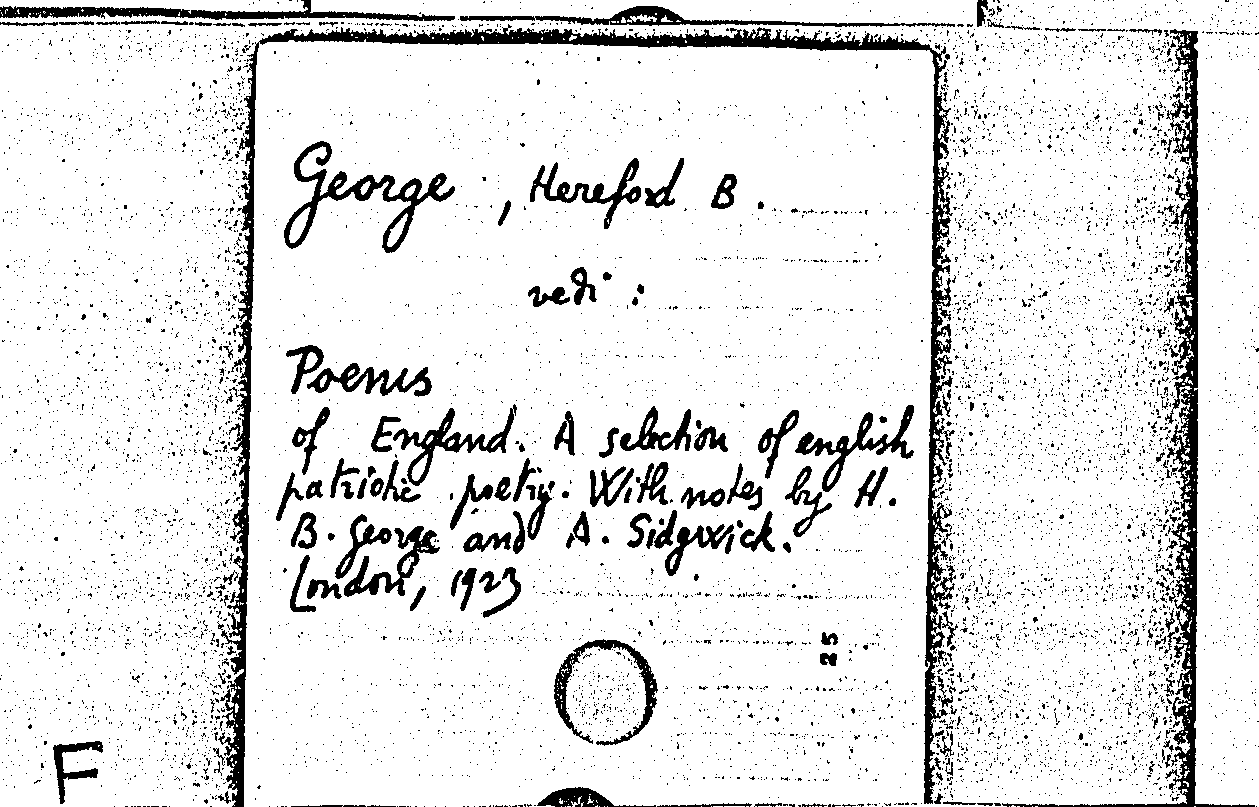 George, Hereford B.
vedi:
Poems
of England. A selection of english
patriotic poetry. With notes by H.
B. George and A. Sidgwick.
London, 1923
25
F